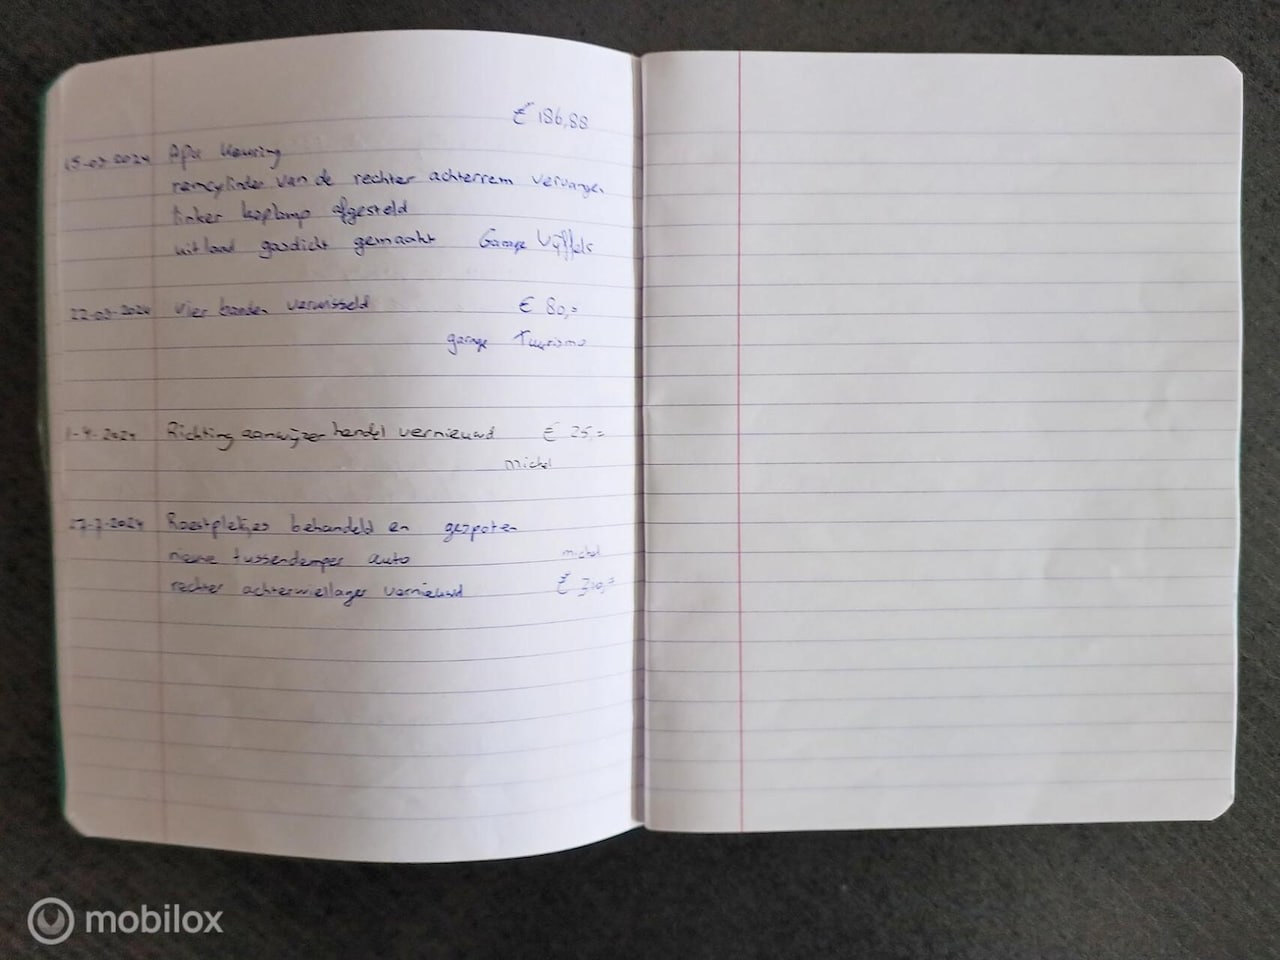 € 186,88
15-03-2024 Apk keuring
remcylinder van de rechter achterrem vervangen
linker koplamp afgesteld
uitlaat gasdicht gemaakt Garage Vijffels
22-03-2024 vier banden verwisseld € 80,=
garage Tuurismo
1-4-2024 Richting aanwijzer hendel vernieuwd € 25,=
michel
27-7-2024 Roestplekjes behandeld en gespoten
nieuwe tussendemper auto michel
rechter achterwiellager vernieuwd €
mobilox